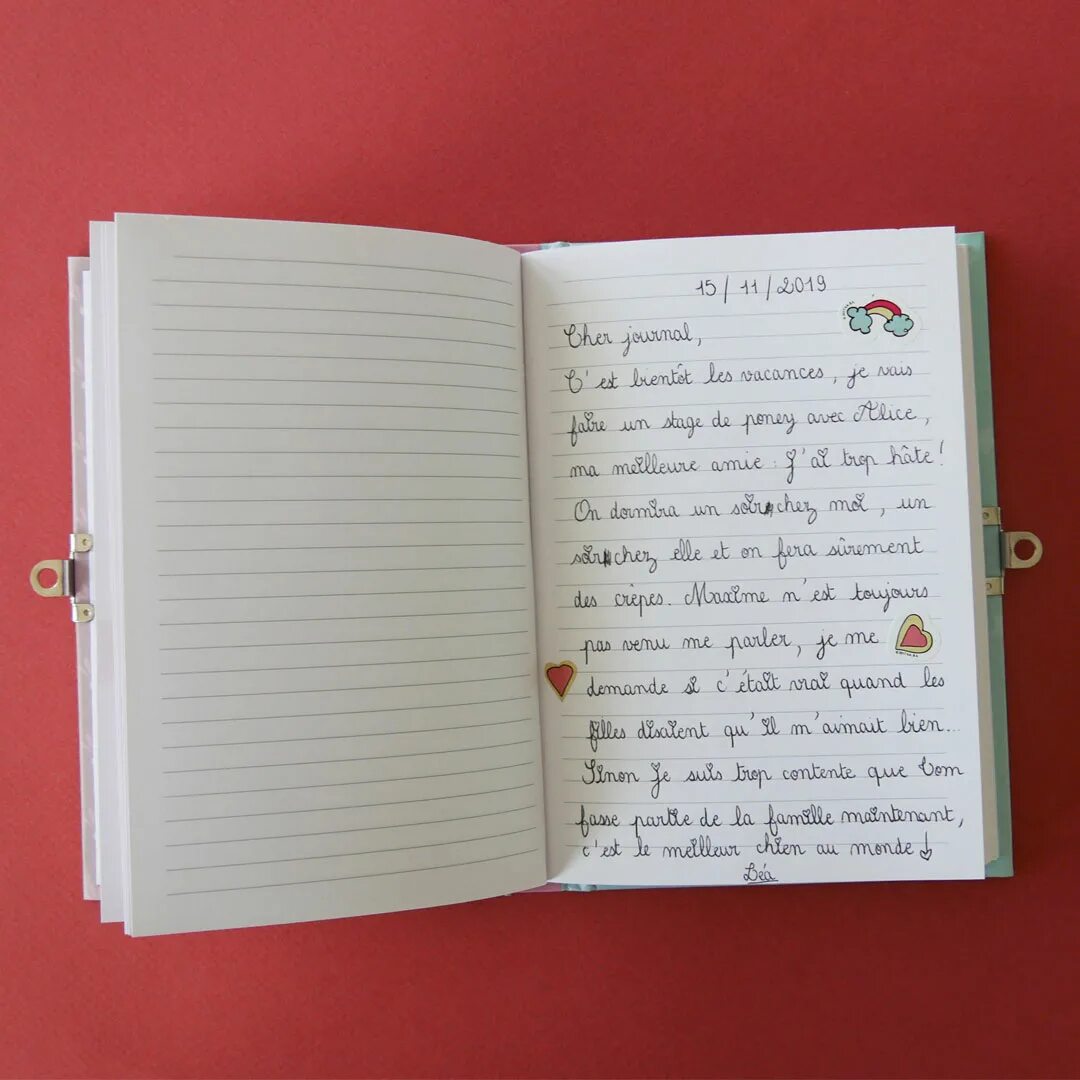 15/11/2019
Cher journal,
C'est bientôt les vacances, je vais
faire un stage de poney avec Alice,
ma meilleure amie : J'ai trop hâte !
On dormira un soir chez moi, un
soir chez elle et on fera sûrement
des crêpes. Maxime n'est toujours
pas venu me parler, je me
demande si c'était vrai quand les
filles disaient qu'il m'aimait bien...
Sinon je suis trop contente que Tom
fasse partie de la famille maintenant,
c'est le meilleur chien au monde
Léa